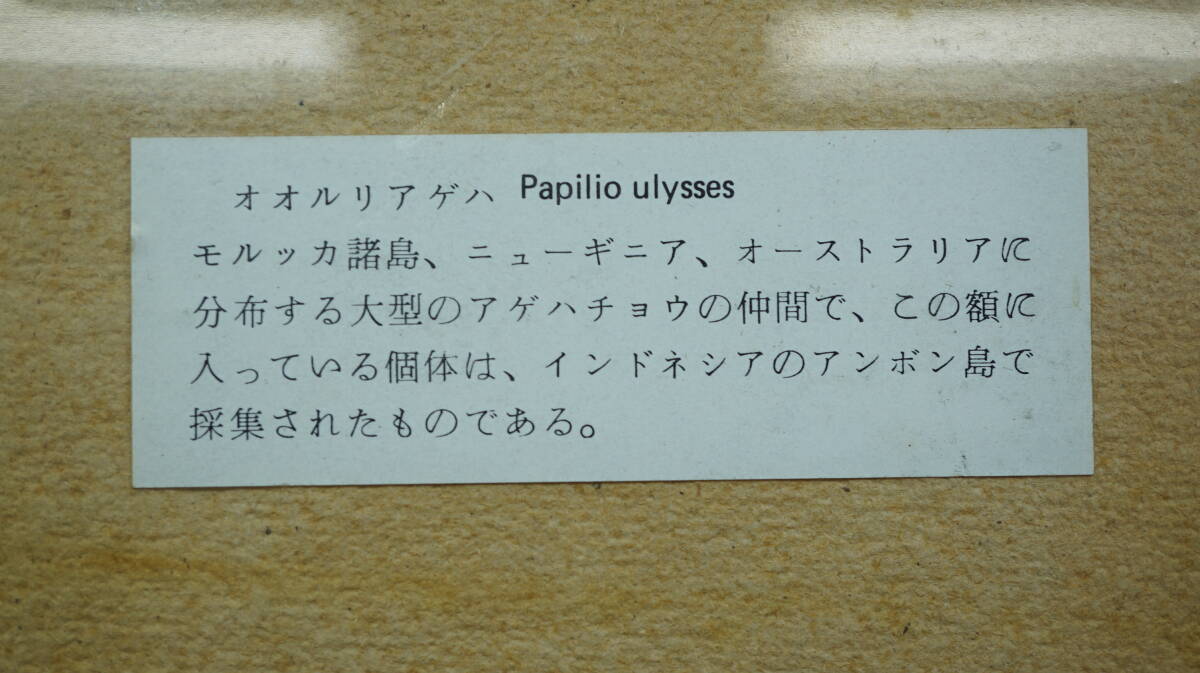 オオルリアゲハ Papilio ulysses
モルッカ諸島、ニューギニア、オーストラリアに
分布する大型のアゲハチョウの仲間で、この額に
入っている個体は、インドネシアのアンボン島で
採集されたものである。